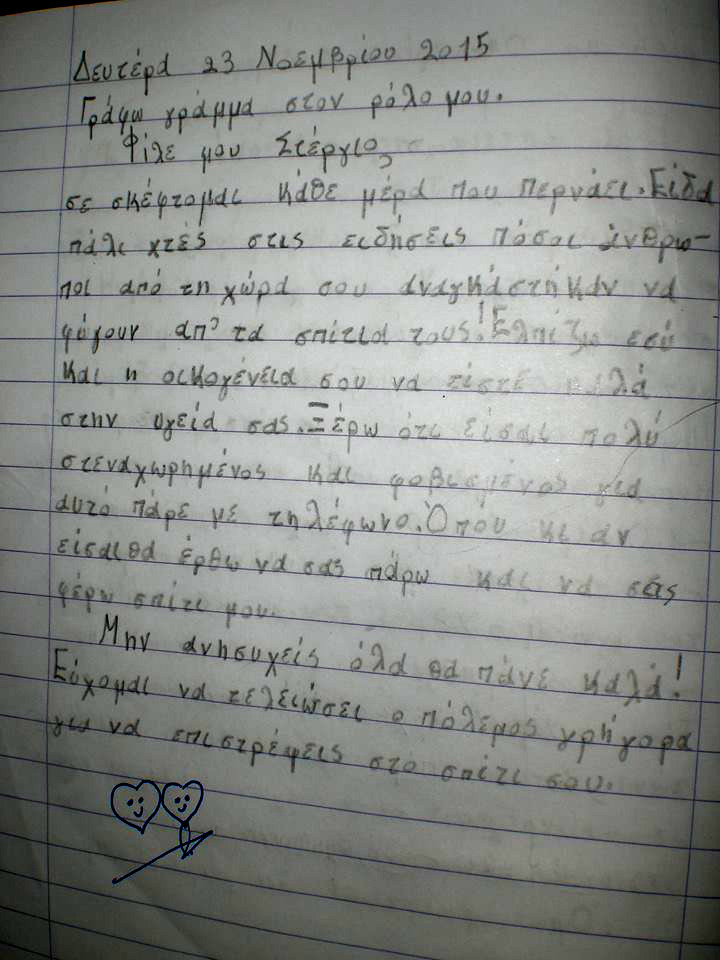 Δευτέρα 23 Νοεμβρίου 2015
Γράφω γράμμα στον ρόλο μου.
Φίλε μου Στέργιο,
σε σκέφτομαι κάθε μέρα που περνάει. Είδα
πάλι χτές στις ειδήσεις πόσοι άνθρω-
ποι από τη χώρα σου αναγκάστηκαν να
φύγουν απ' τα σπίτια τους! Ελπίζω εσύ
και η οικογένεια σου να είστε καλά
στην υγεία σας. Ξέρω ότι είσαι πολύ
στεναχωρημένος και φοβισμένος για
αυτό πάρε με τηλέφωνο. Όπου κι αν
είσαι θα έρθω να σας πάρω και να σας
φέρω σπίτι μου.
Μην ανησυχείς όλα θα πάνε καλά!
Εύχομαι να τελειώσει ο πόλεμος γρήγορα
για να επιστρέψεις στο σπίτι σου.